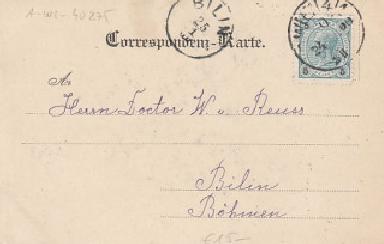 A-WI-40275
BILIN
Correspondenz-Karte.
A.
Herrn Doctor W. v. Reuss
Bilin
Böhmen
€15-